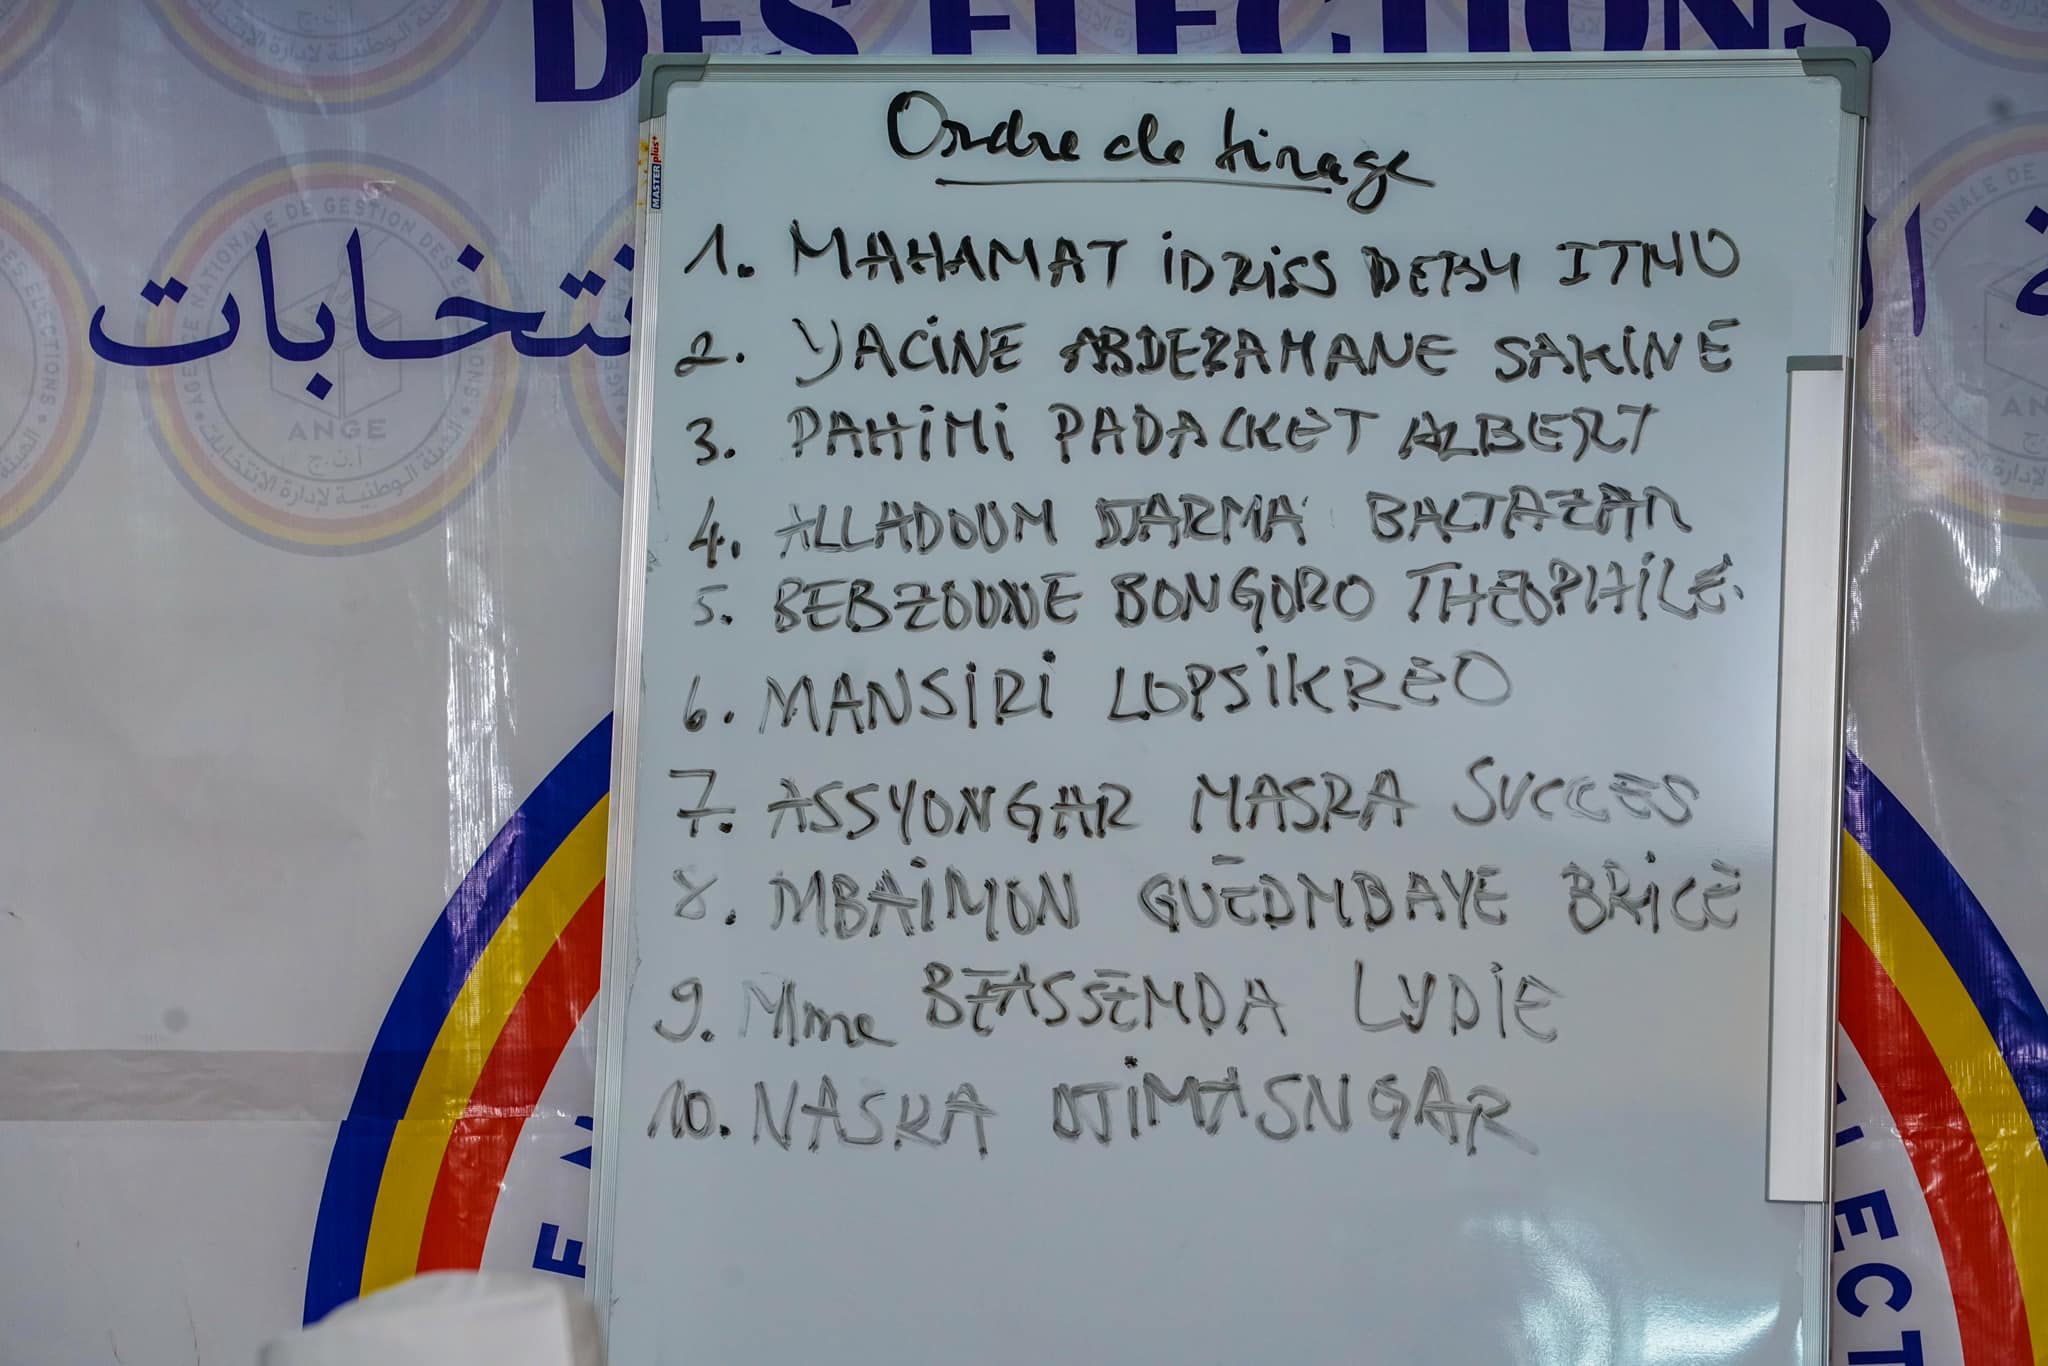 DES ELECTIONS
Ordre de tirage
1. MAHAMAT IDRISS DEBY ITNO
2. YACINE ABDERAMANE SAKINE
3. PAHIMI PADACKET ALBERT
4. ALLADOUM DJARMA BALTAZAR
5. BEBZOUNE BONGORO THEOPHILE.
6. MANSIRI LOPSIKREO
7. ASSYONGAR MASRA SUCCES
8. MBAIMON GUEDMBAYE BRICE
9. Mme BEASSEMDA LYDIE
10. NASRA DJIMASNGAR
MASTER plus+
AGENCE NATIONALE DE GESTION DES ELECTIONS
ANGE
ا.ن.ج
الهيئة الوطنية لإدارة الإنتخابات